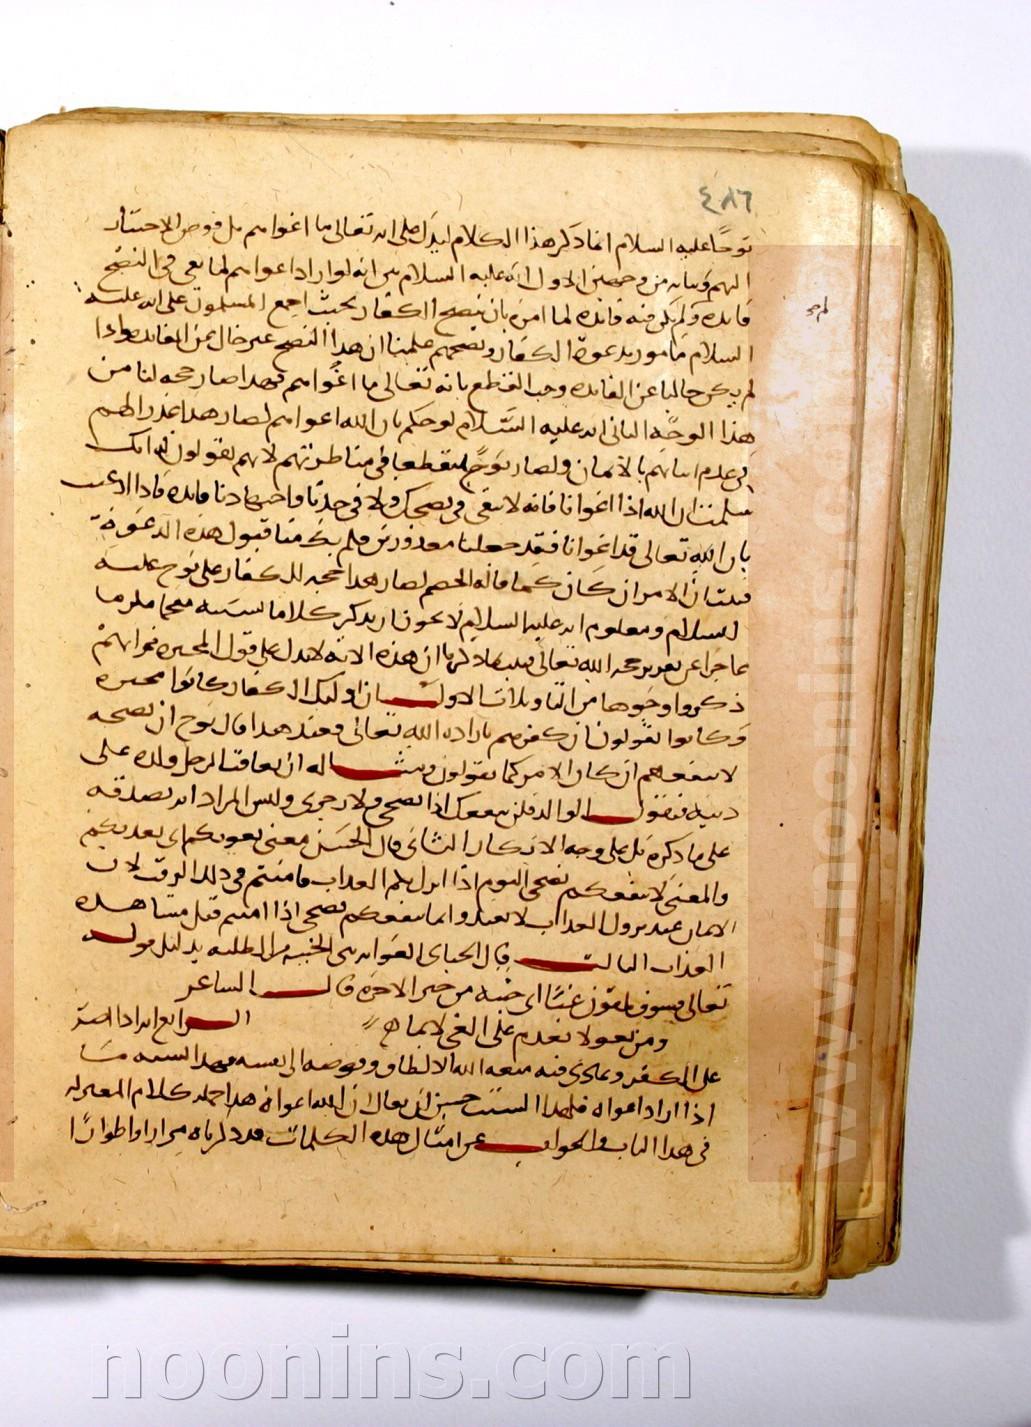 ٤٨٦
نوحًا عليه السلام انما ذكر هذا الكلام ليدل على انه تعالى ما اغواهم بل فوض الاختيار
اليهم وبيانه من وجهين الاول انه عليه السلام بين انه لو اراد اغواهم لما بقى فى النصح
فايده ولو لم يكن فيه فايده لما امره بان ينصح الكفار بحيث اجمع المسلمون على انه عليه
السلام مامور بدعوة الكفار ونصحهم علمنا ان هذا النصح غير خال عن الفايده واذا
لم يكن خاليا عن الفايده وجب القطع بانه تعالى ما اغواهم فهذا صار حجه لنا من
هذا الوجه الثانى انه عليه السلام لو حكم بان الله اغواهم لصار هذا عذرا لهم
فى عدم اتيانهم بالايمان ولصار نوح منقطعا فى مناظرتهم لانهم يقولون له انك
سلمت ان الله اذا اغوانا فانه لا يبقى فى نصحك ولا فى جدنا واجتهادنا فايده فاذا ادعيت
بان الله تعالى قد اغوانا فقد جعلنا معذورين فلم يكن منا قبول هذه الدعوة
فثبت ان الامر ان كان كما قاله الخصم لصار هذا حجه للكفار على نوح عليه
السلام ومعلوم انه عليه السلام لا يجوز ان يذكر كلاما بسببه مفحما ملزما
عاجزا عن تقرير حجه الله تعالى فثبت بما ذكرنا ان هذه الايه لا تدل على قول المجبره ثم انهم
ذكروا وجوها من التاويلات الاول ان اوليك الكفار كانوا مجبره
وكانوا يقولون ان كفرهم باراده الله تعالى فعند هذا قال نوح ان نصحه
لا ينفعهم ان كان الامر كما يقولون ومثاله ان يعاقب الرجل ولده على
ذنبه فيقول الوالد فلن ينفعك اذا نصحى ولا زجرى وليس المراد انه يصدقه
على ما ذكره بل على وجه الانكار الثانى قال الحسن معنى يغويكم اى يعذبكم
والمعنى لا ينفعكم نصحى اليوم اذا نزل بكم العذاب فامنتم فى ذلك الوقت لان
الايمان عند نزول العذاب لا يفيد وانما ينفعكم نصحى اذا امنتم قبل مشاهده
العذاب الثالث قال الجباى الغوايه هى الخيبه من الطلبه بدليل قوله
تعالى فسوف يلقون غيًا اى خيبه من خير الاخره قال الشاعر
ومن يغو لا يعدم على الغى لايما الرابع انه اذا اصر
على الكفر وتمادى فيه منعه الله الالطاف وفوضه الى نفسه فهذا شبيه بما
اذا اراد اغواه فلهذا السبب حسن ان يقال ان الله اغواه هذا جمله كلام المعتزله
فى هذا الباب والجواب عن امثال هذه الكلمات قد ذكرناه مرارا واطوارًا
www.noonins.com
noonins.com